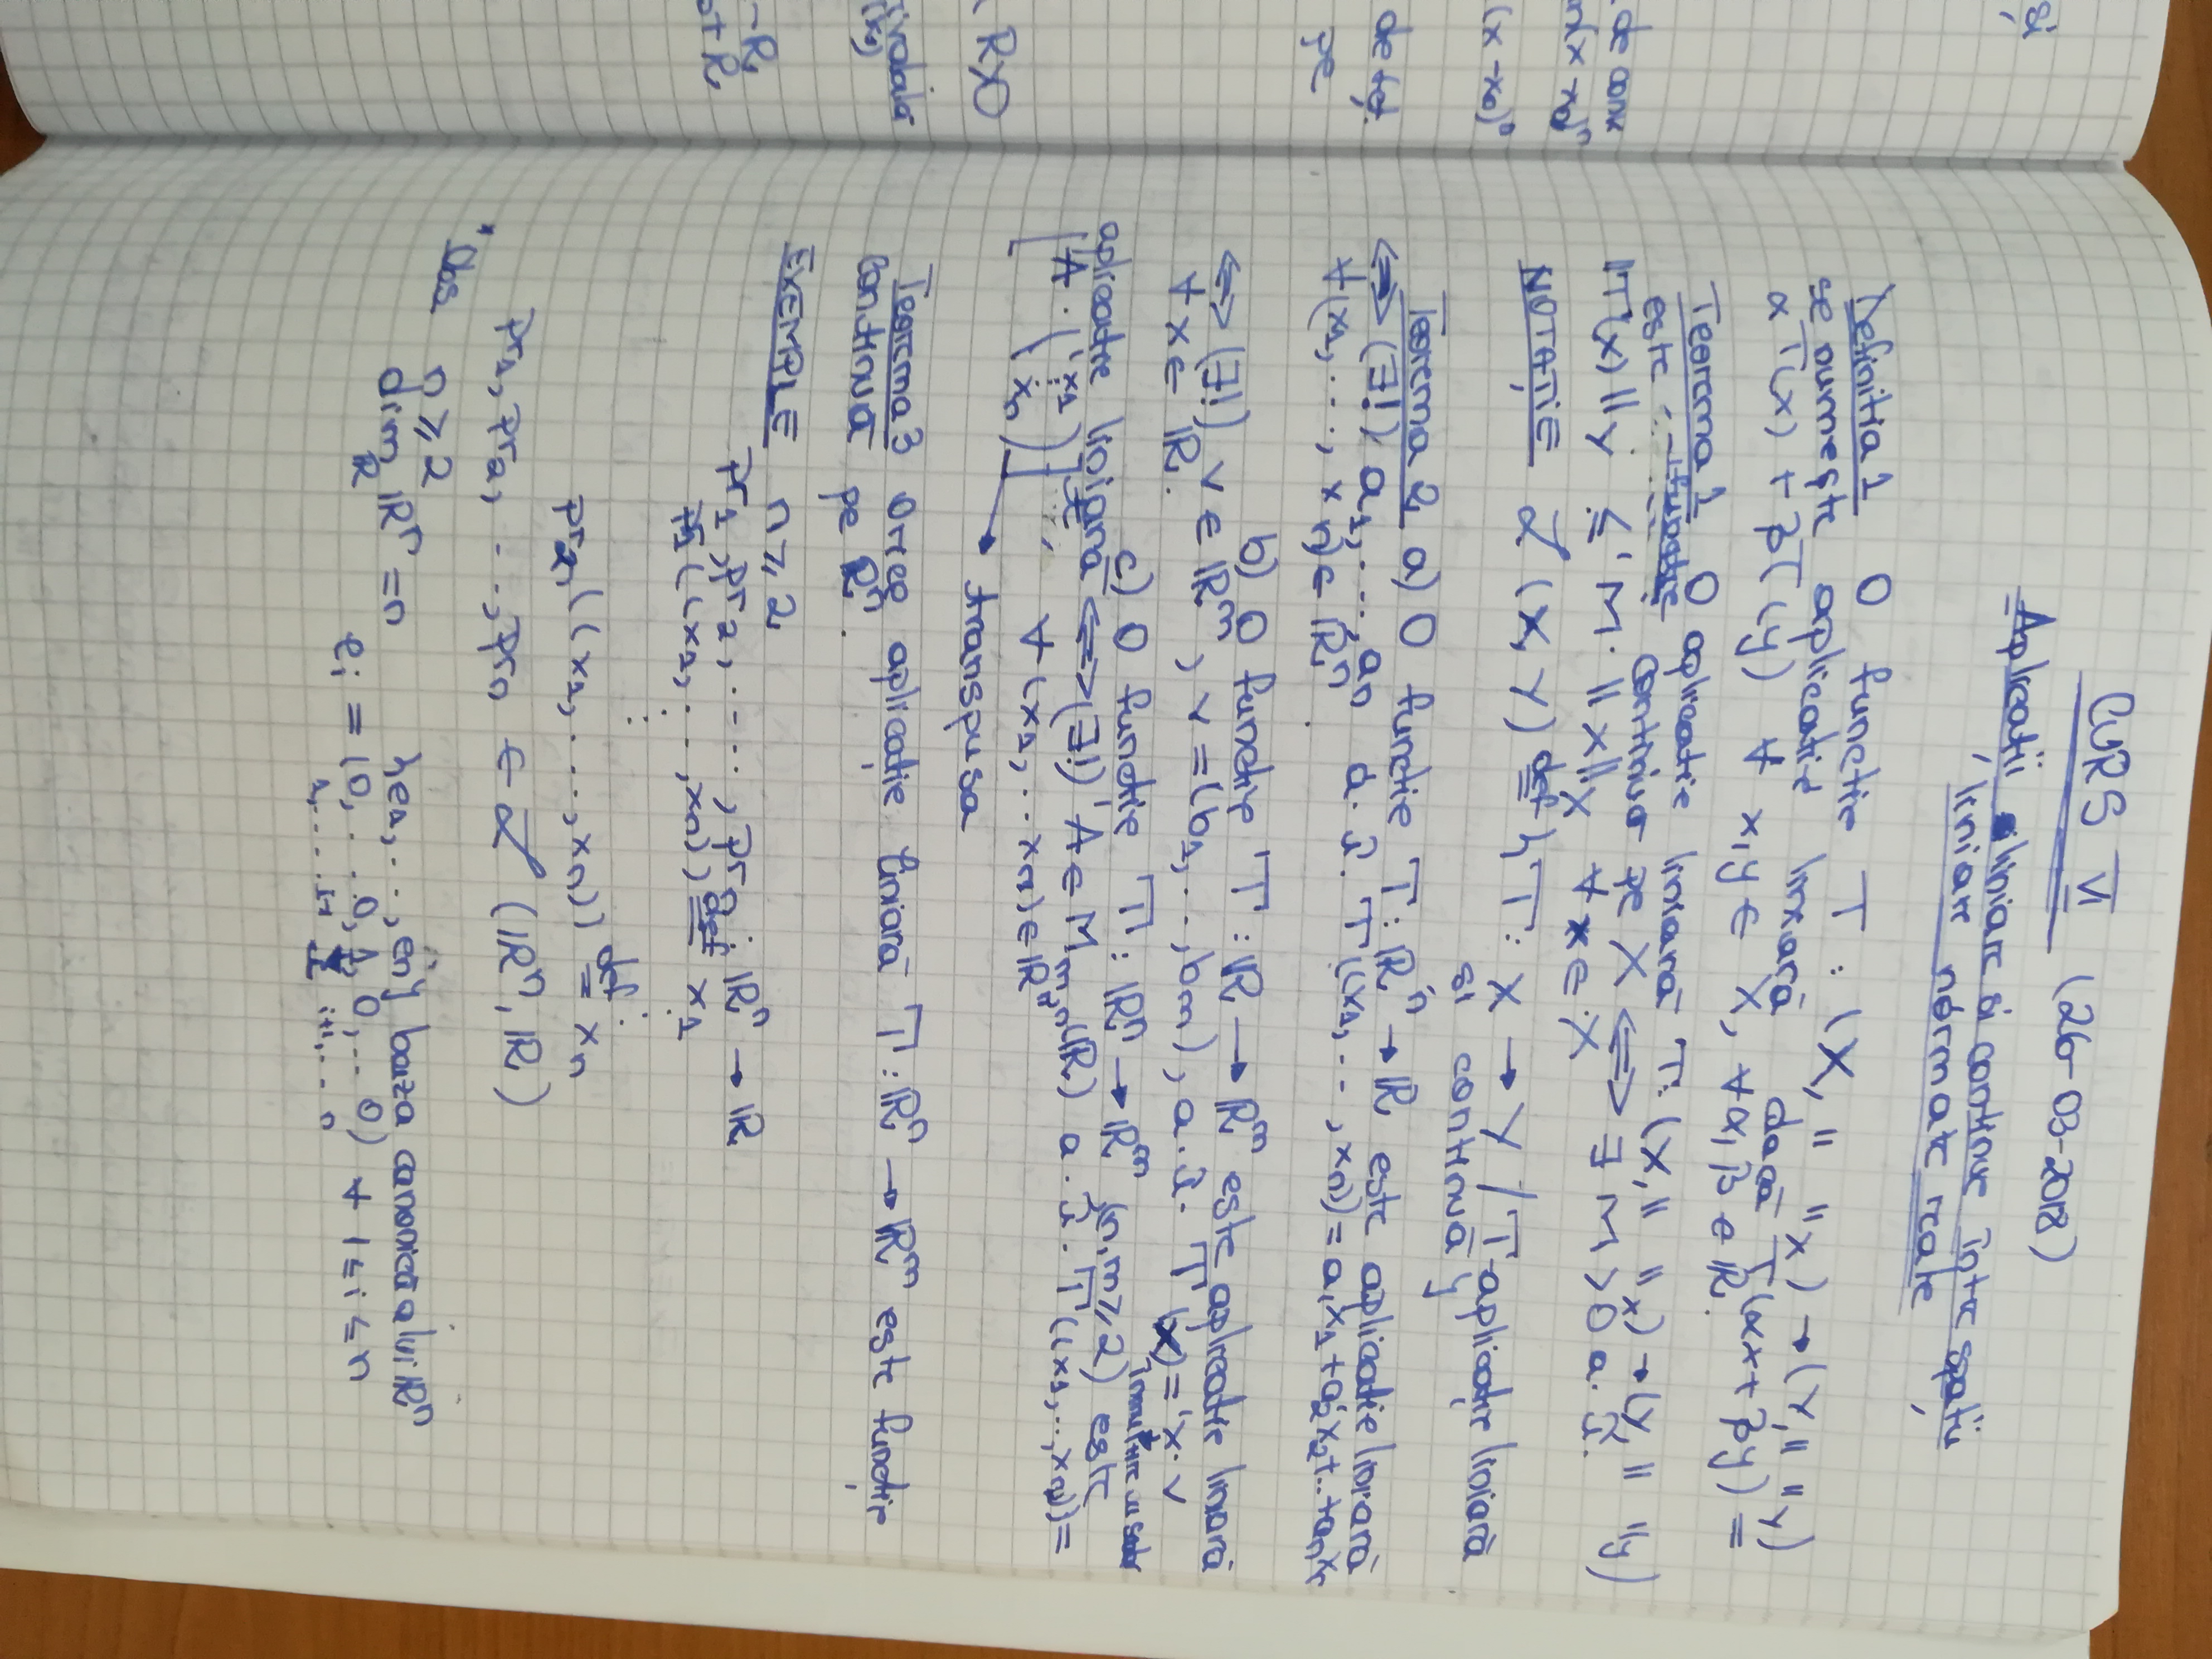 CURS VI (26-03-2018)
Aplicații liniare și continue între spații
liniare normate reale
Definiția 1 O funcție T : (X, || ||x) → (Y, || ||y)
se numește aplicație liniară dacă T(αx + βy) =
αT(x) + βT(y) ∀ x,y ∈ X, ∀ α, β ∈ ℝ.
Teorema 1 O aplicație liniară T: (X, || ||x) → (Y, || ||y)
este continuă pe X <=> ∃ M > 0 a.î.
||T(x)||y ≤ M · ||x||x ∀ x ∈ X
NOTAȚIE ℒ(X, Y) def { T: X → Y / T aplicație liniară
și continuă }
Teorema 2 a) O funcție T: ℝⁿ → ℝ este aplicație liniară
<=> (∃!) a₁, ... an a.î. T((x₁, ..., xn)) = a₁x₁ + a₂x₂ + .. + anxn
∀ (x₁, ..., xn) ∈ ℝⁿ.
b) O funcție T : ℝ → ℝᵐ este aplicație liniară
<=> (∃!) v ∈ ℝᵐ, v = (b₁, ..., bm), a.î. T(x) = x · v
∀ x ∈ ℝ.
c) O funcție T : ℝⁿ → ℝᵐ (n, m ≥ 2) este
aplicație liniară <=> (∃!) A ∈ Mm,n(ℝ) a.î. T((x₁, ..., xn)) =
[A · (x₁ ⋮ xn)]ᵗ, ∀ (x₁, ... xn) ∈ ℝⁿ
→ transpusa
Teorema 3 Orice aplicație liniară T : ℝⁿ → ℝᵐ este funcție
continuă pe ℝⁿ.
EXEMPLE n ≥ 2
pr₁, pr₂, ..., prn : ℝⁿ → ℝ
pr₁((x₁, ..., xn)) def x₁
⋮
pr₂,((x₁, ..., xn)) def = xn
pr₁, pr₂, ..., prn ∈ ℒ(ℝⁿ, ℝ)
* Obs n ≥ 2
dim ℝ ℝⁿ = n {e₁, ..., en} baza canonică a lui ℝⁿ
ei = (0, ... 0, 1, 0, ... 0) ∀ 1 ≤ i ≤ n
1, ... i-1 i i+1, ... n